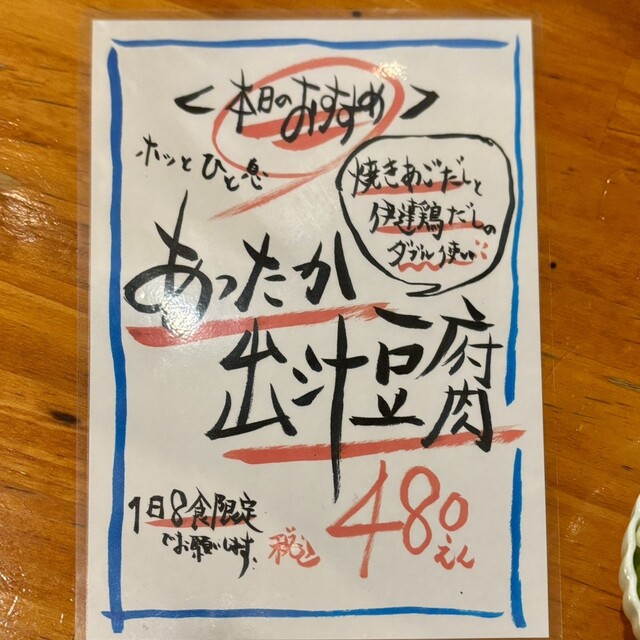 <本日のおすすめ>
ホッとひと息
焼きあごだしと
伊達鶏だしの
ダブル使い
あったか
出汁豆腐
1日8食限定
でお願いします。
税込
480
えん